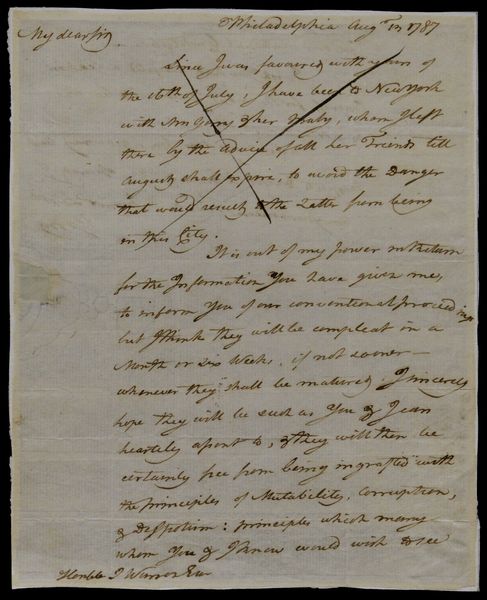 Philadelphia Aug 13 1787
My dear sir
Since I was favoured with yours of
the 16th of July, I have been to New York
with Mrs Gerry & her Baby, whom I left
there by the Advice of all her Friends till
August shall expire, to avoid the Danger
that would result to the Latter from being
in this City.
It is out of my power in Return
for the Information You have given me,
to inform You of our conventional proceedings
but I think they will be compleat in a
Month or six Weeks, if not sooner —
whenever they shall be matured I sincerely
hope they will be such as You & I can
heartily assent to, & they will then be
certainly free from being ingrafted with
the principles of Mutability, Corruption,
& Despotism: principles which many
whom You & I know would wish to see
Honble J Warren Esqr